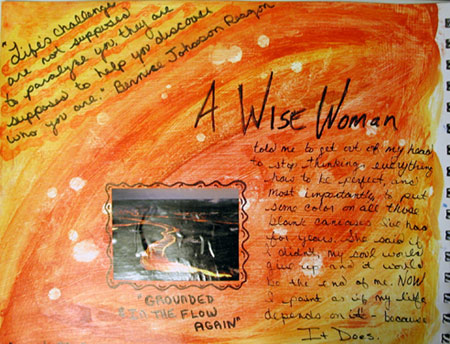 "Life's challenges
are not supposed
to paralyze you, they are
supposed to help you discover
who you are." Bernice Johnson Reagon
A Wise Woman
told me to get out of my head
to stop thinking everything
how to be perfect, and
most importantly to put
some color on all those
blank canvases I've had
for years. She said if
I didn't my soul would
give up and it would
be the end of me. NOW
I paint as if my life
depends on it - because
It Does.
"GROUNDED
& IN THE FLOW
AGAIN"